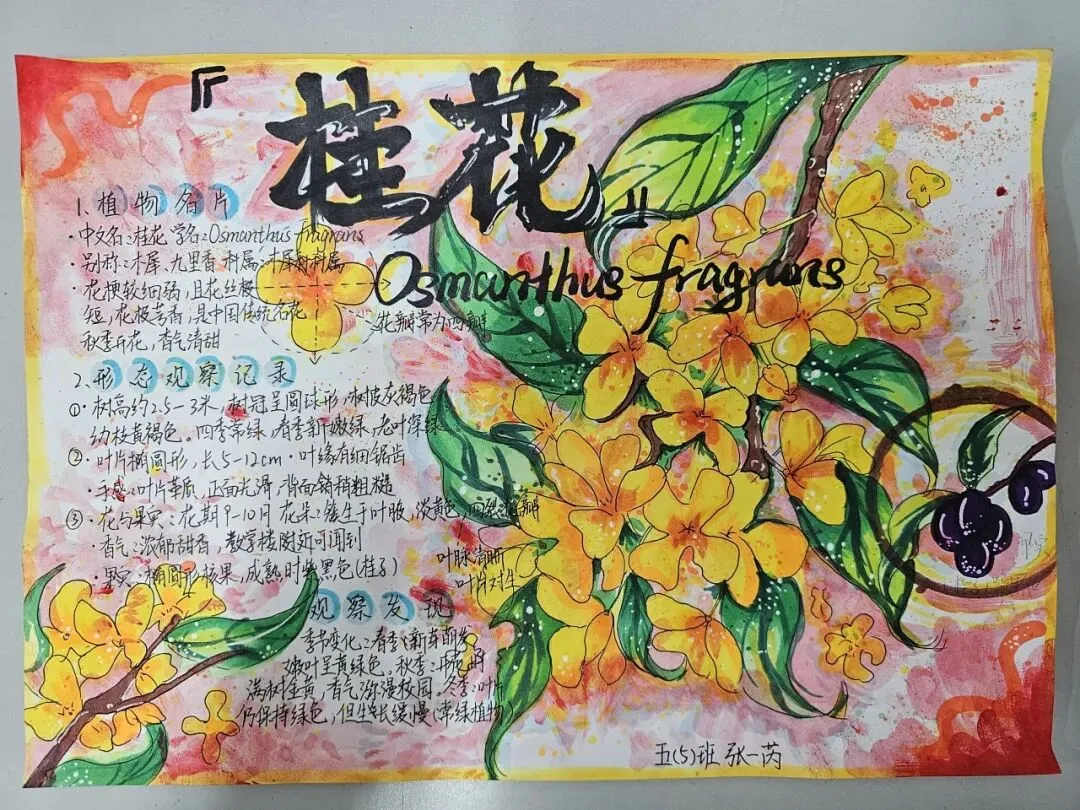 『桂花』
Osmanthus fragrans
1、植物名片
·中文名：桂花 学名：Osmanthus fragrans
·别称：木犀、九里香 科属：木犀科属
·花梗较细弱，且花丝极
短，花极芳香，是中国传统名花
秋季开花，香气清甜
花瓣常为四瓣
2、形态观察记录
①·树高约2.5-3米，树冠呈圆球形，树皮灰褐色
幼枝黄褐色。四季常绿，春季新嫩绿，老叶深绿
②·叶片椭圆形，长5-12cm·叶缘有细锯齿
·手感：叶片革质，正面光滑，背面稍粗糙
③·花与果实：花期9-10月 花朵：簇生于叶腋，淡黄色，四裂花瓣
·香气：浓郁甜香，教学楼附近可闻到
·果实：椭圆形核果，成熟时紫黑色(桂子)
叶脉清晰
叶片对生
观察发现
季节变化：春季：新芽萌发
嫩叶呈黄绿色。秋季：开花时
满树金黄，香气弥漫校园。冬季：叶片
仍保持绿色，但生长缓慢(常绿植物)
五(5)班 张一芮